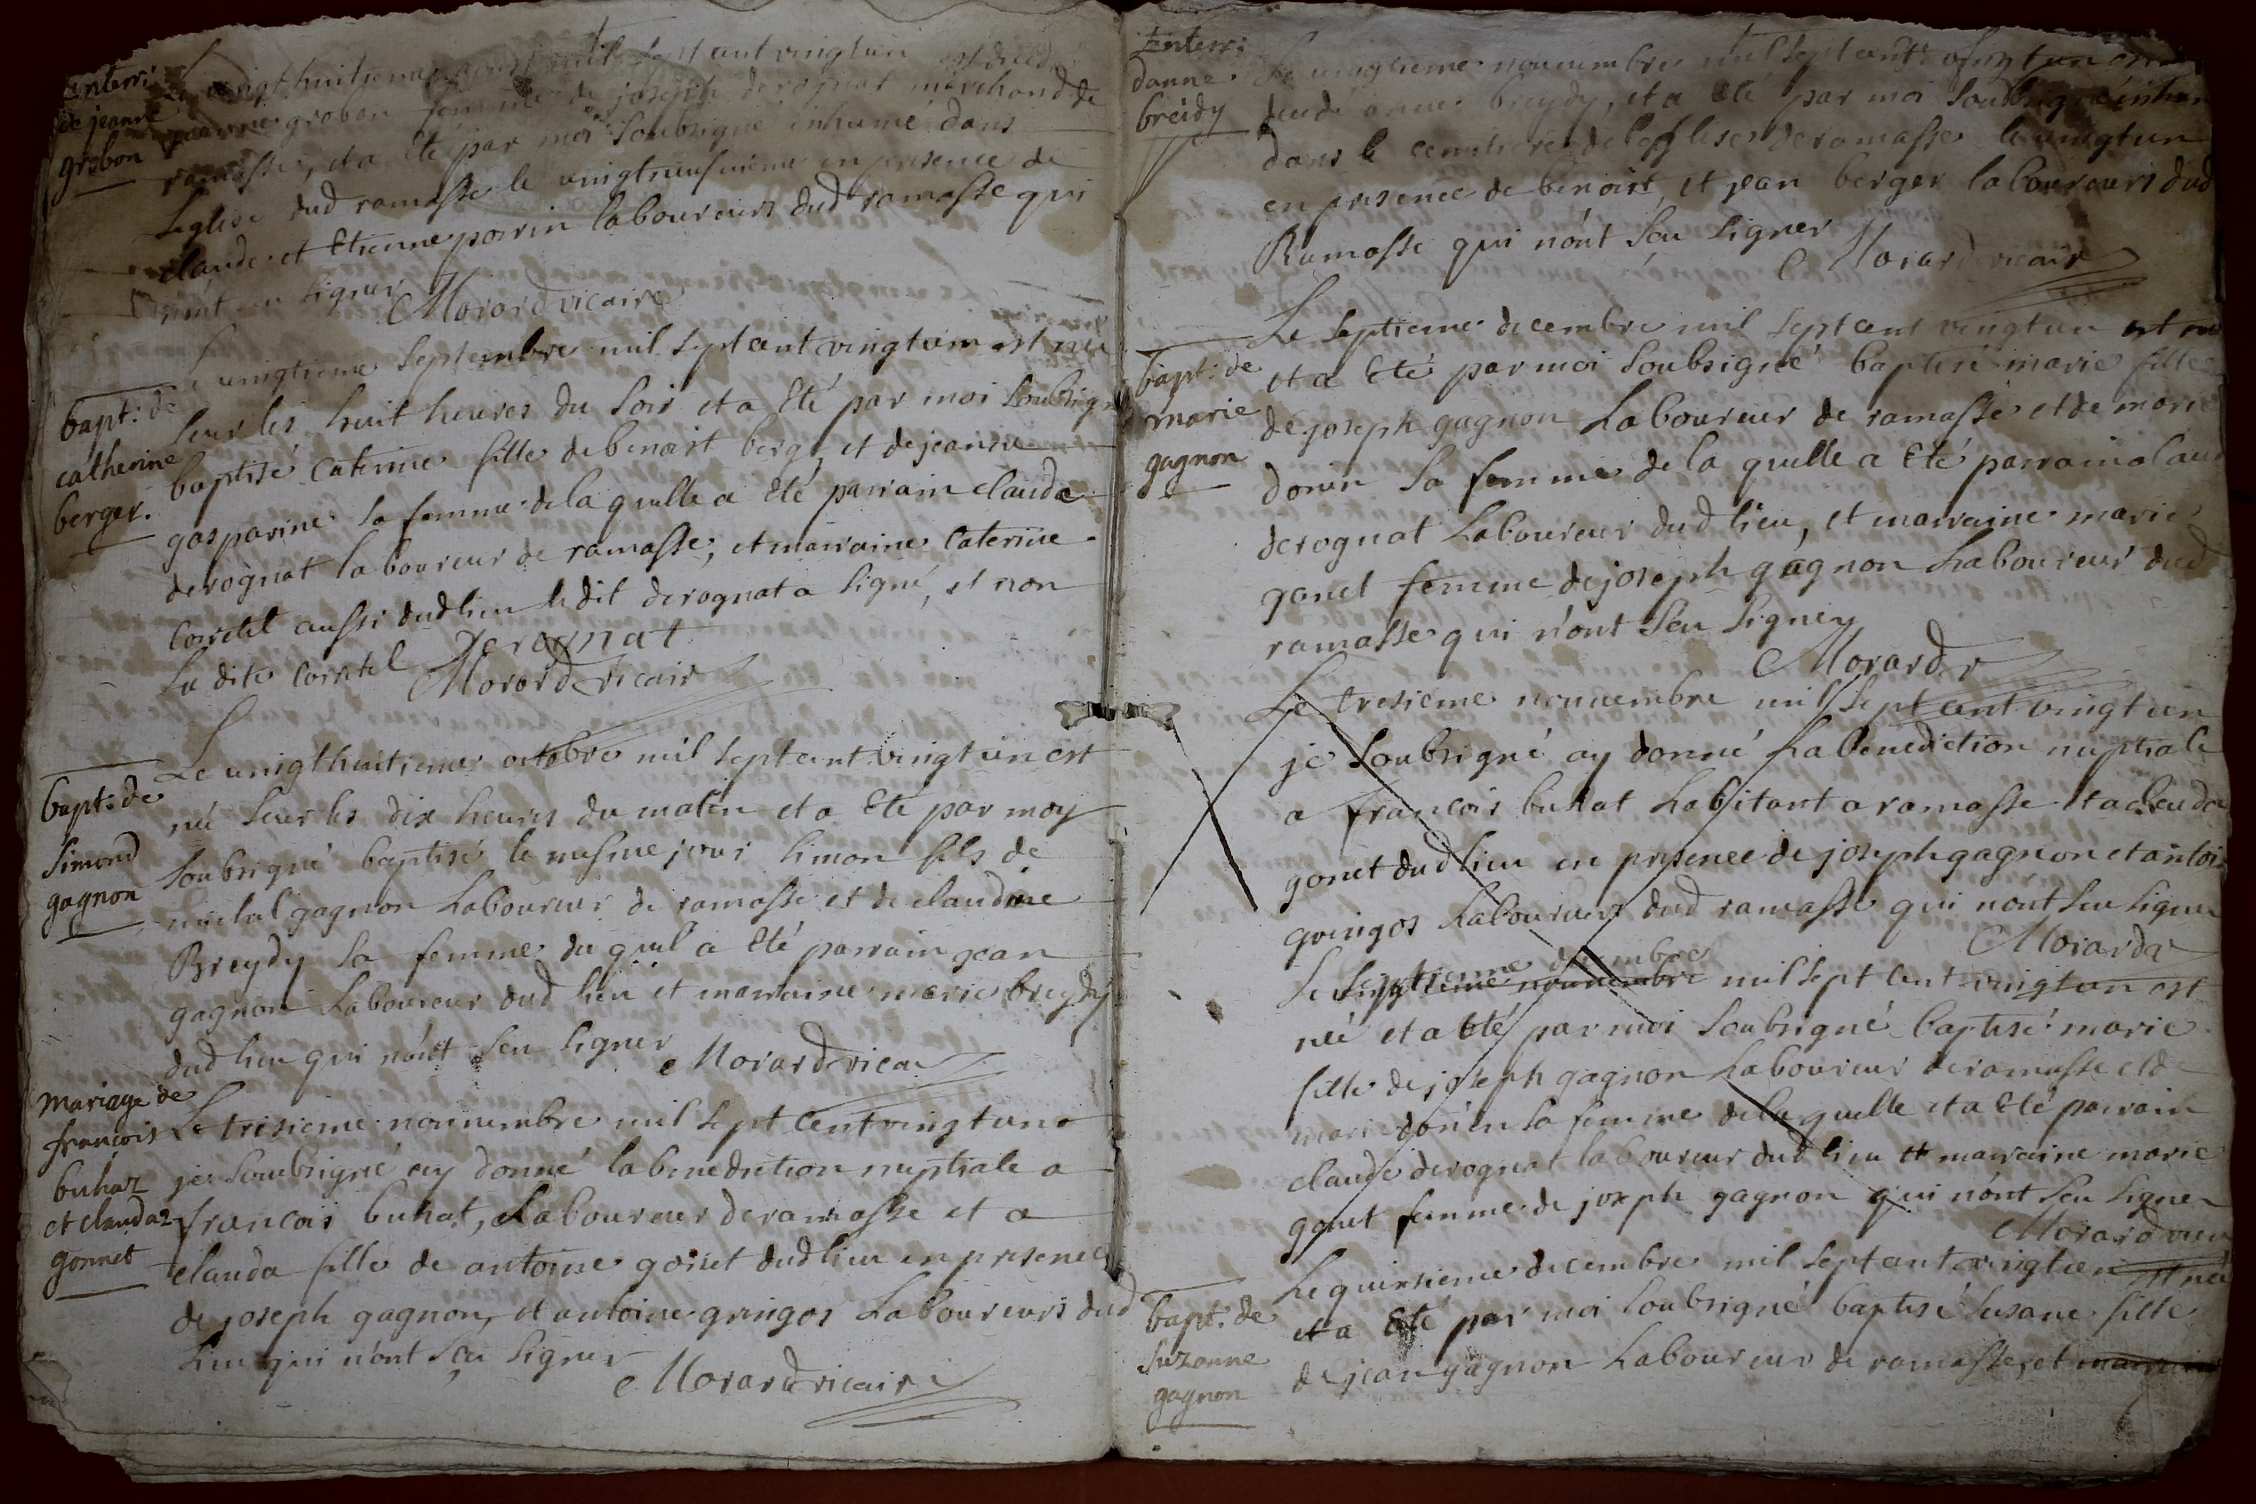 enterr:
de jeanne
grobon
Le vingt huitieme aoust mil sept cent vingt un est decedée
jeanne grobon femme de joseph derognat marchand de
ramasse, et a été par moi soubsigné inhumé dans
Leglise dud ramasse le vingtneufvieme en presence de
claude et Etienne poirin laboureurs dud ramasse qui
n'ont seu signer
Morard vicaire
bapt: de
catherine
berger.
Le vingtieme septembre mil sept cent vingt un est née
seur les huit heures du soir et a été par moi soubsigné
baptisé caterine fille de benoist berge, et de jeanne
gasparine sa femme de la quelle a été parrain claude
derognat laboureur de ramasse, et marraine caterine
corretel aussi dud lieu le dit derognat a signé, et non
La dite corretel Derognat
Morard vicair
bapt: de
simond
gagnon
Le vingthuitieme octobre mil sept cent vingt un est
né seur les dix heures du matin et a été par moy
soubsigné baptisé le mesme jour simon fils de
michal gagnon Laboureur de ramasse et de claudine
Breydy sa femme du quel a été parrain jean
gagnon Laboureur dud lieu et marraine marie breydy
dud lieu qui n'ont seu signer
Morard vicai
mariage de
francois
buhaz
et claudaz
gonnet
Le tresieme nouvembre mil sept cent vingt un
je soubsigné ay donné la benediction nuptiale a
francois buhat, Laboureur de ramasse et a
clauda fille de antoine gonet dud lieu en presence
de joseph gagnon, et antoine gringos Laboureurs dud
Lieu qui n'ont seu signer
Morard vicaire
Enterr:
danne
breidy
Le vingtieme nouvembre mil sept cent vingt un est
decedé anne breydy, et a été par moi soubsigné inhumé
dans le cemitiere de leglise de ramasse le vingt un
en presence de benoist, et jean berger laboureurs dud
Ramasse qui n'ont seu signer
Morard vicair
bapt: de
marie
gagnon
Le septieme decembre mil sept cent vingt un est née
et a été par moi soubsigné baptisé marie fille
de joseph gagnon Laboureur de ramasse et de marie
donin sa femme de la quelle a été parrain claude
derognat Laboureur dud lieu, et marraine marie
gonet femme de joseph gagnon Laboureur dud
ramasse qui n'ont seu signer
Morard v
Le tresieme nouvembre mil sept cent vingt un
je soubsigné ay donné La benediction nuptiale
a francois buhat Labitant a ramasse et a clauda
gonet dud lieu en presence de joseph gagnon et antoine
gringos Laboureurs dud ramasse qui n'ont seu signer
Morard v
decembre
Le septieme nouvembre mil sept cent vingt un est
née et a été par moi soubsigné baptisé marie
fille de joseph gagnon Laboureur de ramasse et de
marie donen sa femme de la quelle et a été parrain
claude derognat laboureur dud lieu et marraine marie
gonet femme de joseph gagnon qui n'ont seu signer
Morard vicai
bapt: de
suzanne
gagnon
Le quinsieme decembre mil sept cent vingt un est née
et a été par moi soubsigné baptisé susane fille
de jean gagnon Laboureur de ramasse, et marraine